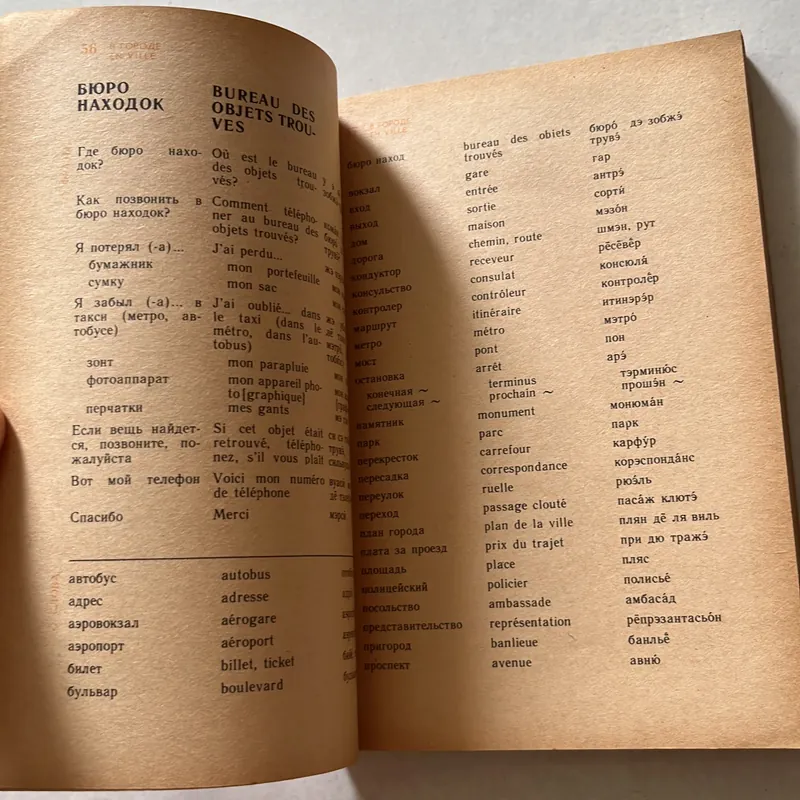 56 В ГОРОДЕ
EN VILLE
БЮРО
НАХОДОК
BUREAU DES
OBJETS TROU-
VÉS
Где бюро нахо-
док?
Où est le bureau
des objets trou-
vés?
Как позвонить в
бюро находок?
Comment télépho-
ner au bureau des
objets trouvés?
Я потерял (-а)...
J'ai perdu...
бумажник
mon portefeuille
сумку
mon sac
Я забыл (-а)... в
такси (метро, ав-
тобусе)
J'ai oublié... dans
le taxi (dans le
métro, dans l'au-
tobus)
зонт
mon parapluie
фотоаппарат
mon appareil pho-
to [graphique]
перчатки
mes gants
Если вещь найдет-
ся, позвоните, по-
жалуйста
Si cet objet était
retrouvé, télépho-
nez, s'il vous plaît
Вот мой телефон
Voici mon numéro
de téléphone
Спасибо
Merci
автобус autobus
адрес adresse
аэровокзал aérogare
аэропорт aéroport
билет billet, ticket
бульвар boulevard
бюро наход
bureau des obiets
trouvés
бюро́ дэ зобжэ́
трувэ́
вокзал gare гар
вход entrée антрэ́
выход sortie сорти́
дом maison мэзо́н
дорога chemin, route шмэн, рут
кондуктор receveur рёсёвё́р
консульство consulat консюля́
контролер contrôleur контролё́р
маршрут itinéraire итинэрэ́р
метро métro мэтро́
мост pont пон
остановка arrêt арэ́
конечная ~ terminus тэрминю́с
следующая ~ prochain ~ прошэ́н ~
памятник monument монюма́н
парк parc парк
перекресток carrefour карфу́р
пересадка correspondance корэспонда́нс
переулок ruelle рюэ́ль
переход passage clouté паса́ж клютэ́
план города plan de la ville плян дё ля виль
плата за проезд prix du trajet при дю тражэ́
площадь place пляс
полицейский policier полисье́
посольство ambassade амбаса́д
представительство représentation рёпрэзантасьо́н
пригород banlieue банльё́
проспект avenue авню́